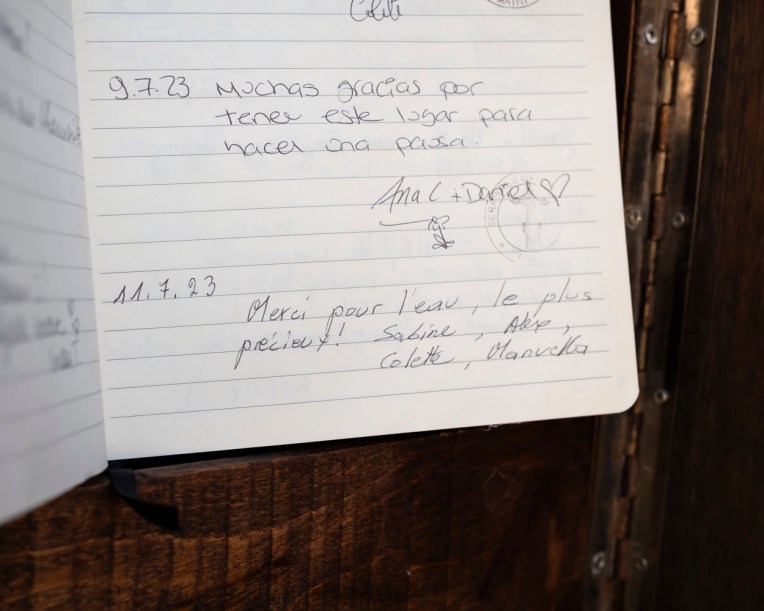 9.7.23 Muchas gracias por
tener este lugar para
hacer una pausa!
Ana C + Daniel ♡
11.7.23
Merci pour l'eau, le plus
précieux! Sabine, Alex,
Colette, Manuella